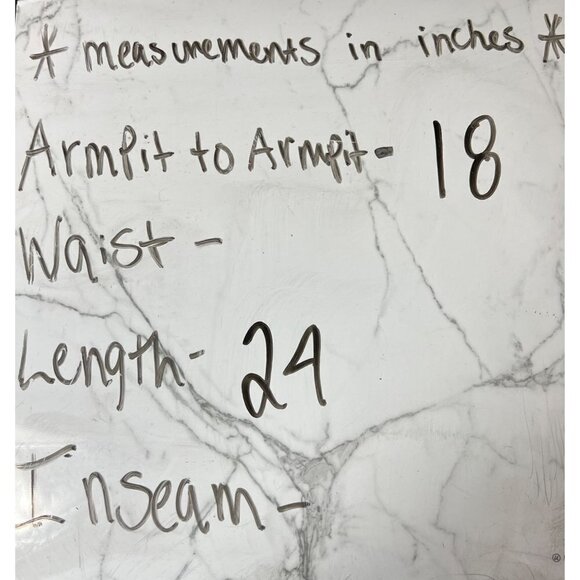 * measurements in inches *
Armpit to Armpit - 18
Waist -
Length - 24
Inseam -